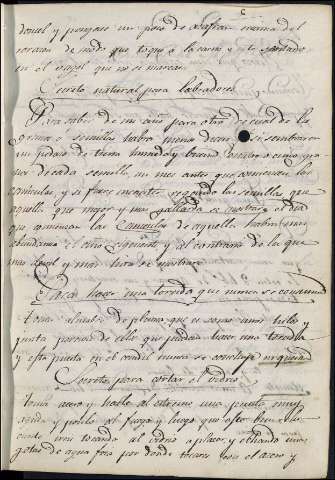 donel y pongase un poco de azafran encima del
corazon de modo que toque a la carne e ste sentado
en el
que no se marca.
Secreto natural para labradores
Para saber de un año para otro de cual de los
granos o semillas habra menos
si sembraron
un pedazo de tierra humedo y bueno
de cada semilla, un mes antes que comiencen las
caniculas y si fuere menester regando las semillas que
aquella que mejor y mas gallarda se mostrare el dia
que comienzan las Caniculas de aquella habra mas
abundancia el año siguiente y al contrario de la que
mas
y mas
se mostrare
Para hacer una torcida que nunca se consuma
Toma alumbre de pluma que es como unos hilos y
junta porcion de ellos que puedan hacer una torcida
y esta puesta en el candil nunca se concluye ni quema
Secreto para cortar el vidrio
Toma acero y hazle al extremo una punta muy
aguda y ponlo al fuego y luego que este bien
iras tocando al vidrio a placer y echando unas
gotas de agua fria por donde tocares con el acero y